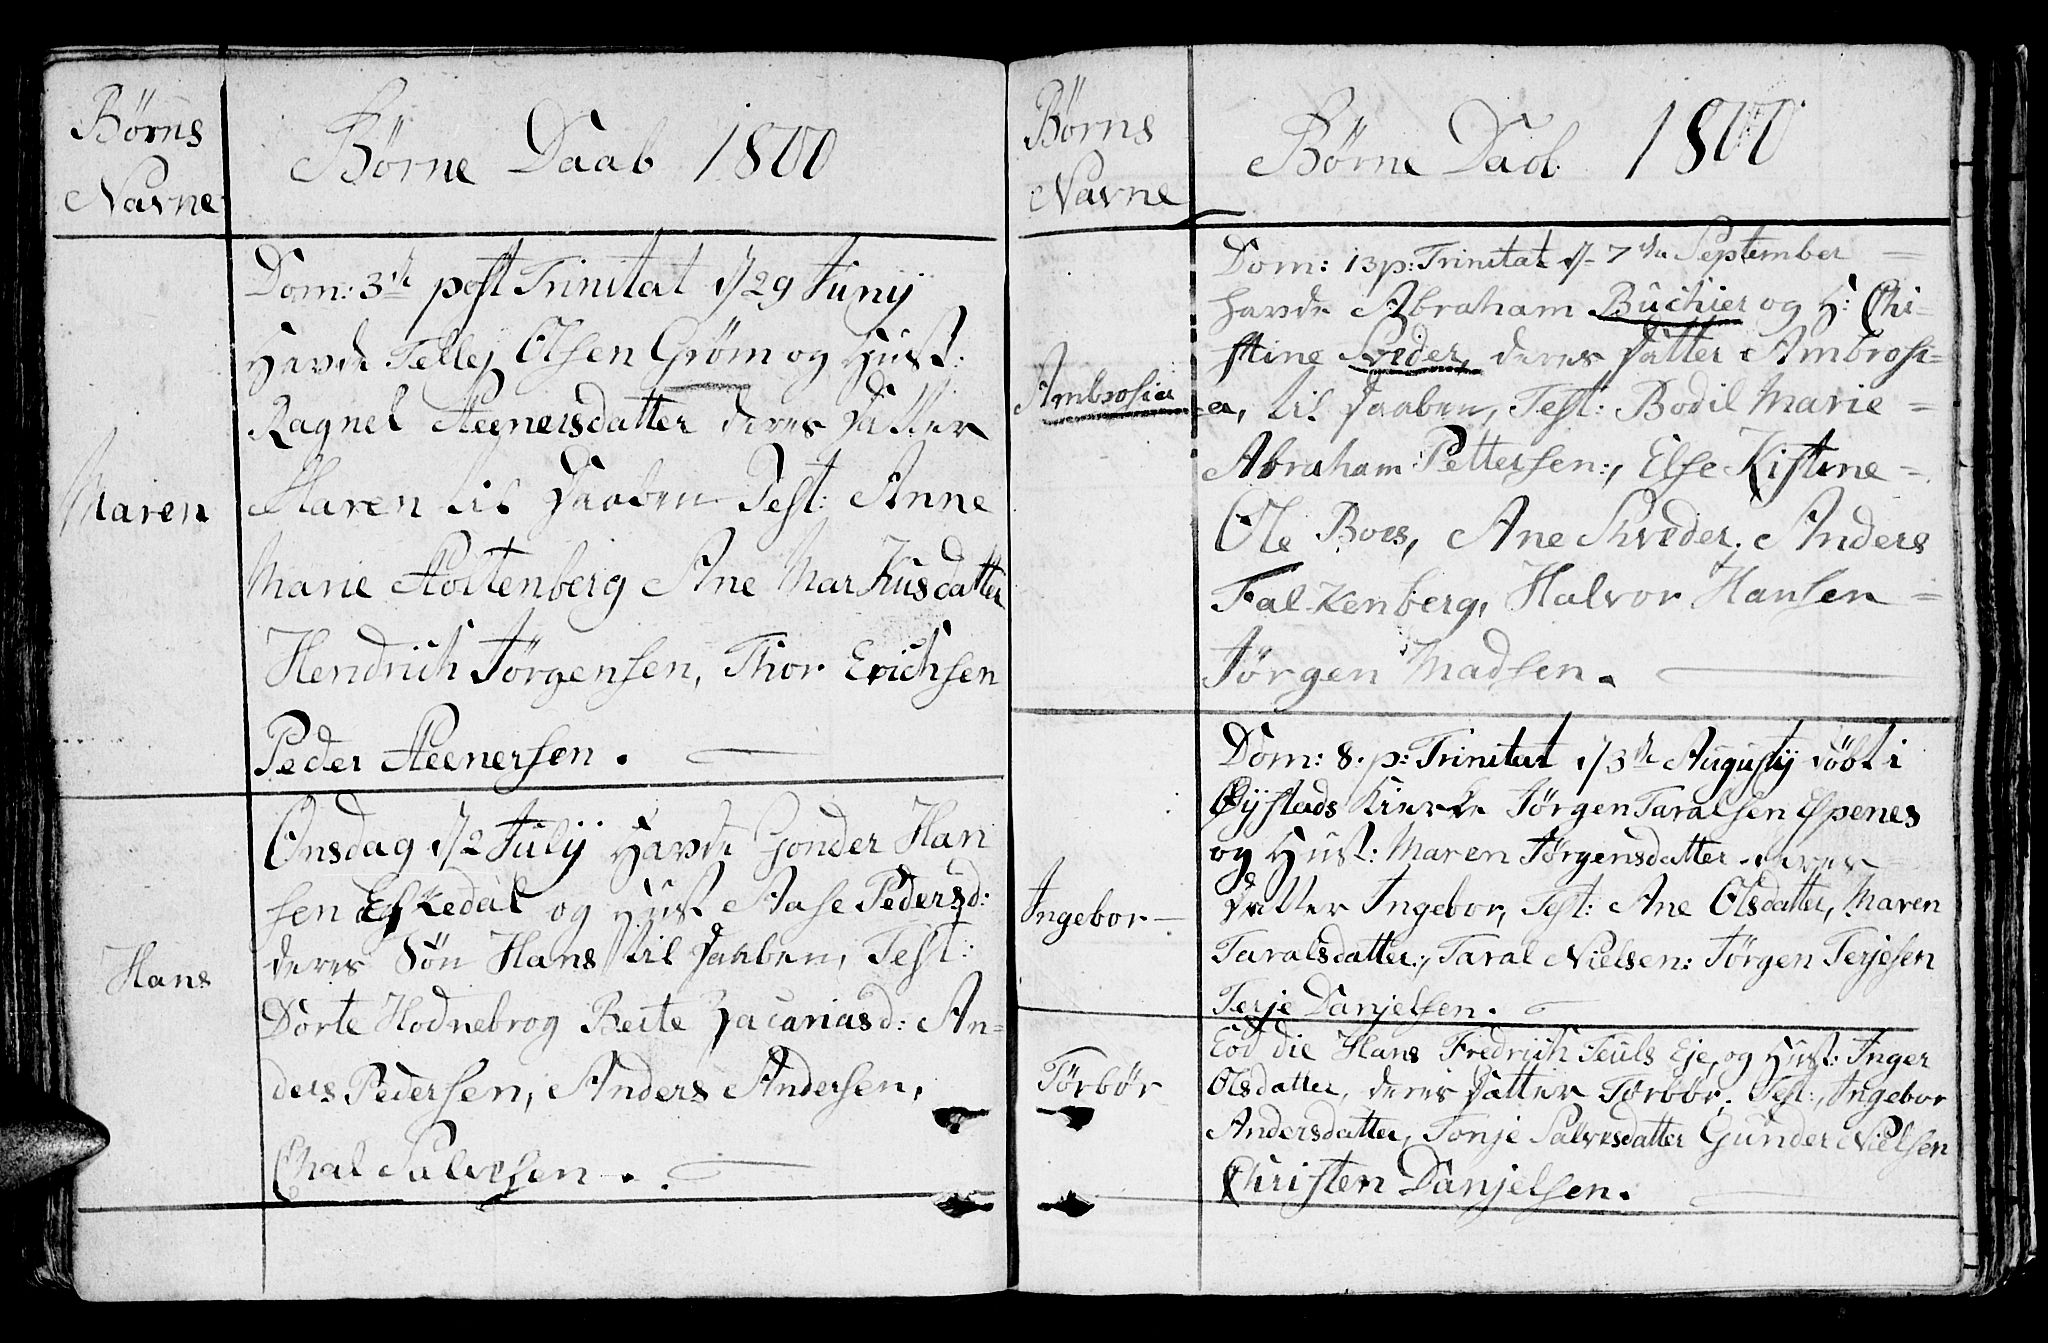 Børns
Navne
Børne Daab 1800
Maren
Dom: 3de post Trinitat d/29 Junÿ
Havde Tellej Olsen Grøm og Hust:
Ragnel Aeenersdatter deres Datter
Maren til Daaben Test: Anne
Marie Aoltenberg Ane Markusdatter
Hendrich Jørgensen, Thor Erichsen
Peder Aeenersen.
Hans
Onsdag d/2 Julÿ Havde Gonder Han
sen Eskedal og Hust Aase Pedersd:
deres Søn Hans til Daaben, Test:
Dorte Hodnebrog Berte Zacariasd: An-
ders Pedersen, Anders Andersen,
Chal Salvesen.
Børns
Navne
Børne Daab 1800
Ambrosia
Dom: 13 p: Trinitat d/- 7de September
havde Abraham Büchier og H: Chi-
stine Sveder, deres Datter Ambrosi-
a, til Daaben, Test: Bodil Marie
Abraham Pettersen:, Else Kistine
Ole Boes, Ane Schveder. Anders
Falkenberg, Halvor Hansen
Jørgen Madsen.
Ingebor
Dom: 8. p: Trinitat d/3de Augustÿ döbt i
Øÿstads Kierke Jørgen Taralsen Espenes
og Hust: Maren Jørgensdatter deres
Datter Ingebor, Test: Ane Olsdatter, Maren
Taralsdatter:, Taral Nielsen: Jørgen Terjesen
Terje Danjelsen.
Törbör
Eod die Hans Fredrich Teuls Eje, og Hust: Inger
Olsdatter, deres Datter Törbör. Test:, Ingebor
Andersdatter, Tonje Salvesdatter Gunder Nielsen
Christen Danjelsen.